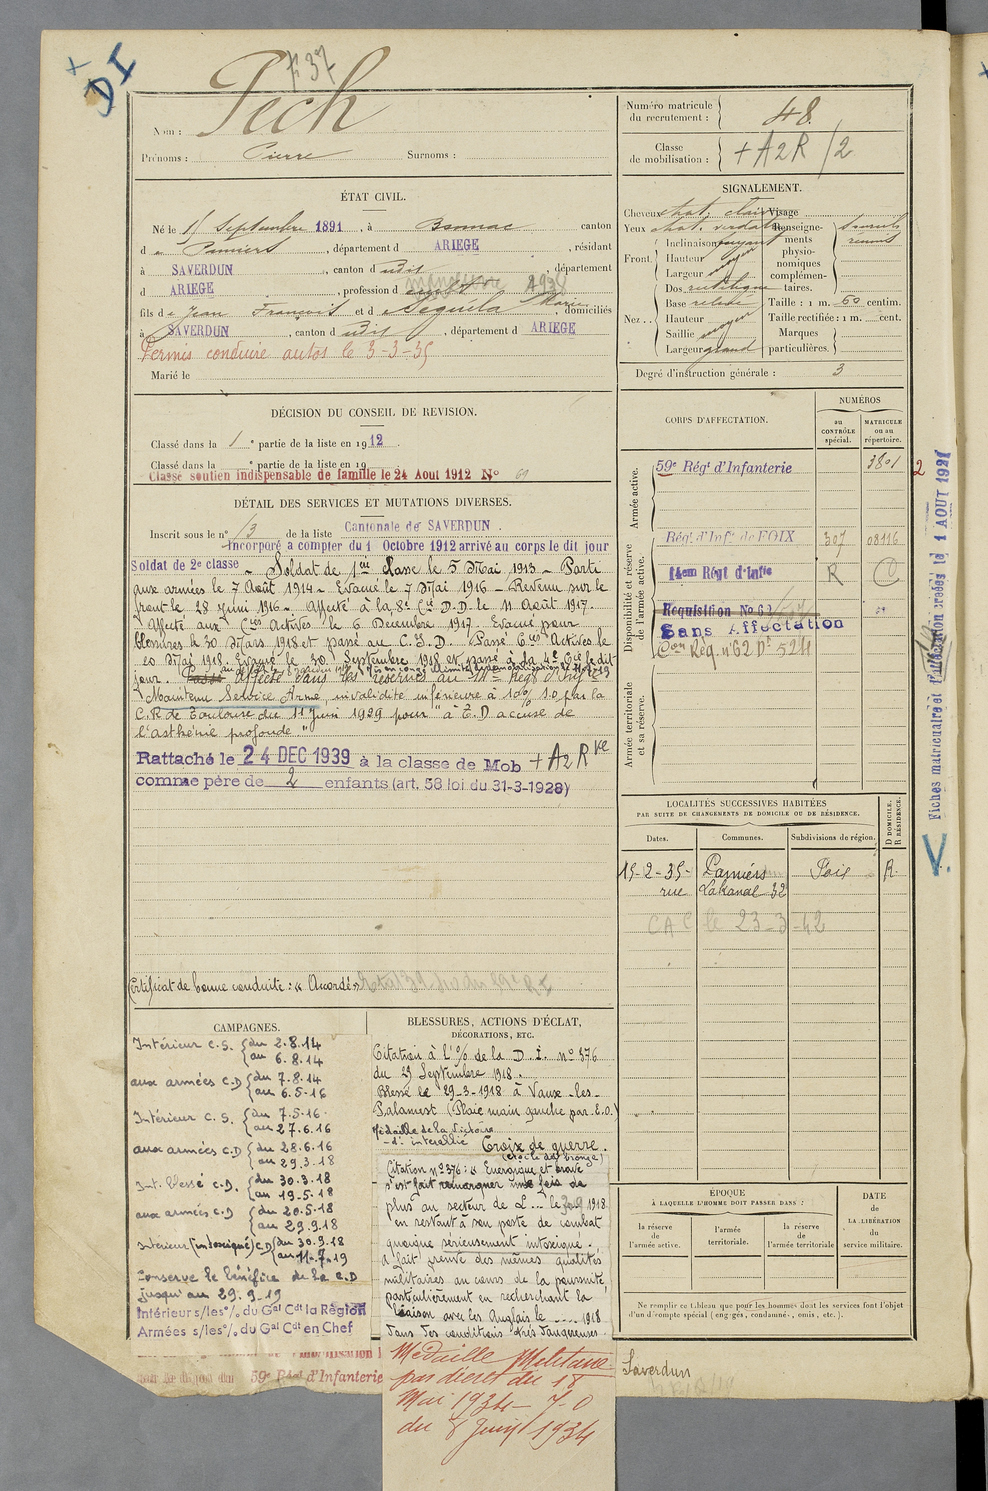 DI
Nom : Pech
Prénoms : Pierre Surnoms :
ÉTAT CIVIL.
Né le 15 Septembre 1891, à Bonnac canton
d e Pamiers, département d ARIEGE, résidant
à SAVERDUN, canton d udit, département
d ARIEGE, profession d
fils d e Jean François et d e Seguela Marie, domiciliés
à SAVERDUN, canton d udit, département d ARIEGE
Permis conduire autos le 3-3-35
Marié le
DÉCISION DU CONSEIL DE REVISION.
Classé dans la 1 e partie de la liste en 1912.
Classé dans la e partie de la liste en 19
Classé soutien indispensable de famille le 24 Aout 1912 No
DÉTAIL DES SERVICES ET MUTATIONS DIVERSES.
Inscrit sous le no 13 de la liste Cantonale de SAVERDUN.
Incorporé a compter du 1 Octobre 1912 arrivé au corps le dit jour
Soldat de 2e classe - Soldat de 1ère Classe le 5 Mai 1913 - Parti
aux armées le 7 Août 1914 - Evacué le 7 Mai 1916 - Revenu sur le
front le 28 Juin 1916 - Affecté à la 8e Cie D.D. le 11 Août 1917.
Affecté aux Cies Actives le 6 Décembre 1917. Evacué pour
le 30 Mars 1918 et passé au C.I.D. Passé Cies Actives le
20 Mai 1918. Evacué le 30 Septembre 1918 et passé à la 4e Cie le dit
jour. affecté dans les réserves au 14e Régt d'Infie
Maintenu Service Armé, invalidité inférieure à 10% 1.0 par la
C.R de Toulouse du 11 Juin 1929 pour "à E.D accuse de
l'asthénie profonde"
Rattaché le 24 DEC 1939 à la classe de Mob + A2Rve
comme père de 2 enfants (art. 58 loi du 31-3-1928)
Certificat de bonne conduite : « Accordé »
CAMPAGNES.
Intérieur C.S. du 2.8.14
au 6.8.14
aux armées C.D du 7.8.14
au 6.5.16
Intérieur C.S. du 7.5.16
au 27.6.16
aux armées C.D du 28.6.16
au 29.3.18
Int. Blessé C.D. du 30.3.18
au 19.5.18
aux armées C.D du 20.5.18
au 29.9.18
Intérieur (intoxiqué) C.D du 30.9.18
au 11.7.19
Conserve le bénéfice de la C.D
jusqu'au 29.9.19
Intérieur s/les o/. du Gal Cdt la Région
Armées s/les o/. du Gal Cdt en Chef
59e Régt d'Infanterie
BLESSURES, ACTIONS D'ÉCLAT,
DÉCORATIONS, ETC.
Citation à l'o/o de la D.I. no 376
du 29 Septembre 1918.
Blessé le 29-3-1918 à Vaux-les-
Palamest (Plaie main gauche par E.O.)
Médaille de la Victoire
- do interallié Croix de guerre.
(étoile de bronze)
Citation no 376 : « Energique et brave
s'est fait remarquer une fois de
plus au secteur de L... le 1918
en restant à son poste de combat
quoique sérieusement intoxiqué.
A fait preuve des mêmes qualités
militaires au cours de la poursuite,
particulièrement en recherchant la
liaison avec les Anglais le .... 1918
dans des conditions très dangereuses.
Médaille Militaire
par décret du 18
Mai 1934 - J.O
du 8 Juin 1934
Numéro matricule du recrutement : 48
Classe de mobilisation : + A2R /2
SIGNALEMENT.
Cheveux chat. clair Visage
Yeux chat. verdatre Renseignements physionomiques complémentaires. sourcils réunis
Front Inclinaison fuyant
Hauteur moyen
Largeur moyen
Nez Dos rectiligne
Base relevée Taille : 1 m. 60 centim.
Hauteur moyen Taille rectifiée : 1 m. cent.
Saillie moyen Marques
Largeur grand particulières.
Degré d'instruction générale : 3
CORPS D'AFFECTATION.
NUMÉROS
au CONTRÔLE spécial.
MATRICULE ou au répertoire.
Armée active.
59e Régt d'Infanterie 3801
Disponibilité et réserve de l'armée active.
Régt. d'Infie de FOIX 307 08116
14em Régt d'Infie R C
Requisition No 62
Sans Affectation
Con Rég. no 62 Pt 524
Armée territoriale et sa réserve.
LOCALITÉS SUCCESSIVES HABITÉES
PAR SUITE DE CHANGEMENTS DE DOMICILE OU DE RÉSIDENCE.
Dates. Communes. Subdivisions de région. D DOMICILE. R RÉSIDENCE.
15-2-35- Pamiers Foix R.
rue Lakanal 32
CAC le 23-3-42
ÉPOQUE
À LAQUELLE L'HOMME DOIT PASSER DANS :
la réserve de l'armée active.
l'armée territoriale.
la réserve de l'armée territoriale
DATE
de
LA LIBÉRATION
du
service militaire.
Ne remplir ce tableau que pour les hommes dont les services font l'objet
d'un décompte spécial (engagés, condamnés, omis, etc.)
Saverdun
Fiches matriculaire et d'affectation créées le 1 AOUT 1927
2
V.